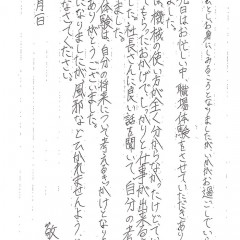 お身にしみるころとなりましたがいかがお過ごしでい
先日はお忙しい中、職場体験をさせていただきあり
ました。
機械の使い方が全く分からなかったけどてい
もらったおかげで、しっかりと仕事が出来る
た。社長さんに良い話を聞いて、自分の考
ました。
体験は、自分の将来について考えるきっかけとなり
ありがとうございました。
になりましたが風邪などひかれませんよう
なさってください。
月日
敬